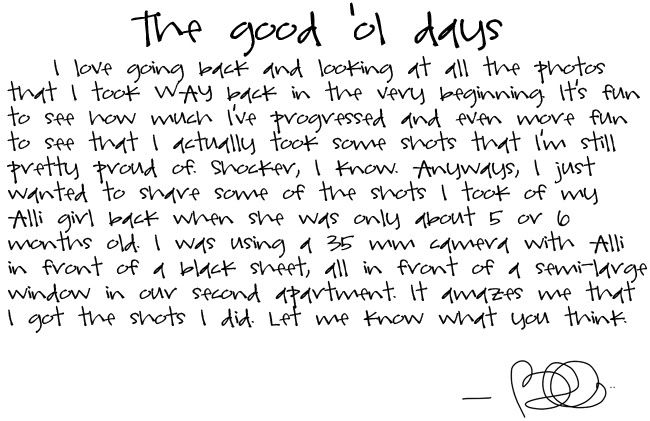 the good 'ol days
I love going back and looking at all the photos
that I took WAY back in the very beginning. It's fun
to see how much I've progressed and even more fun
to see that I actually took some shots that I'm still
pretty proud of. Shocker, I know. Anyways, I just
wanted to share some of the shots I took of my
Alli girl back when she was only about 5 or 6
months old. I was using a 35 mm camera with Alli
in front of a black sheet, all in front of a semi-large
window in our second apartment. It amazes me that
I got the shots I did. Let me know what you think.